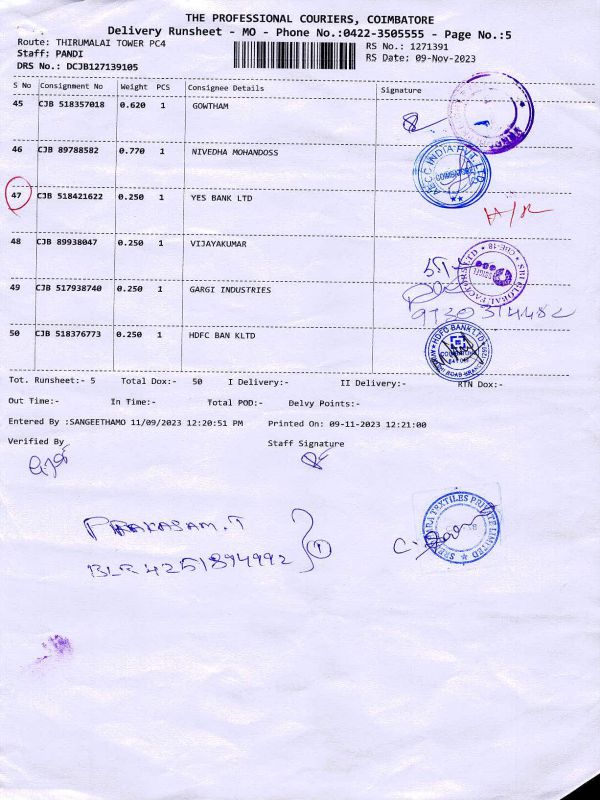 THE PROFESSIONAL COURIERS, COIMBATORE
Delivery Runsheet - MO - Phone No.:0422-3505555 - Page No.:5
Route: THIRUMALAI TOWER PC4
RS No.: 1271391
Staff: PANDI
RS Date: 09-Nov-2023
DRS No.: DCJB127139105
S No Consignment No Weight PCS Consignee Details Signature
45 CJB 518357018 0.620 1 GOWTHAM
46 CJB 89788582 0.770 1 NIVEDHA MOHANDOSS
AECC INDIA PVT LTD
COIMBATORE
47 CJB 518421622 0.250 1 YES BANK LTD
48 CJB 89938047 0.250 1 VIJAYAKUMAR
CBE-18
49 CJB 517938740 0.250 1 GARGI INDUSTRIES
50 CJB 518376773 0.250 1 HDFC BAN KLTD
HDFC BANK LTD
COIMBATORE
Tot. Runsheet:- 5 Total Dox:- 50 I Delivery:- II Delivery:- RTN Dox:-
Out Time:- In Time:- Total POD:- Delvy Points:-
Entered By :SANGEETHAMO 11/09/2023 12:20:51 PM Printed On: 09-11-2023 12:21:00
Verified By Staff Signature
TEXTILES PRIVATE LIMITED
PRAKASAM.T
BLR 4251894992 1